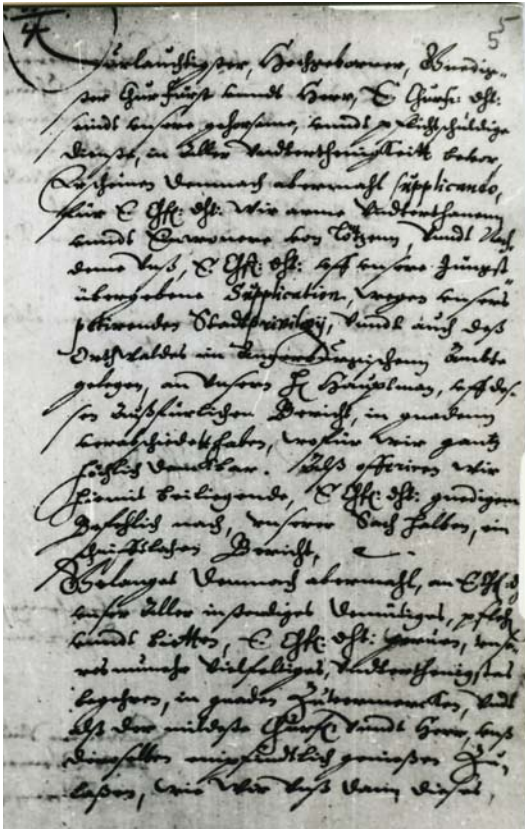 4
5
Durlauchtigster, Hochgeborner, Gnedig-
ster Churfürst unndt Herr, E Churf: dht:
seindt unsere gehorsame, unndt pflichtschüldige
dienste, in aller undterthenigkeitt bevor,
Erscheinen demnach abermahl supplicando,
für E. Chf: dht: wir arme undterthanenn
unndt Einwonere von Lötzenn, undt Nach-
deme unß, E Chf: dht: uff unsere Jüngst
übergebene Supplication, wegen unsers
petirenden Stadtprivilegij, undt auch deß
Orthwaldes im Angerbürgischenn Ambte
gelegen, an unsern H: Hauptman, uff deß-
sen außfürlichen Bericht, in gnadenn
verabschidett haben, wofür wir gantz
höchlich danckbar. Alß offeriren wir
hiemit beiliegende, E Chf: dht: gnedigem
Befehlich nach, unserer Sach halben, ein
schriftlichen Bericht,
Gelanget demnach abermahl, an E Chf: d
unser aller instendiges demütiges, pflehen
unndt bitten, E. Chf: dht: geruen, unse-
res nunmehr vielfeltiges, undterthenigstes
begehren, in gnaden zuvermercken, undt
alß der mildeste Churf: unndt Herr, unß
derselben empfindtlich genießen zu-
laßen, wie wir unß dann dieses,